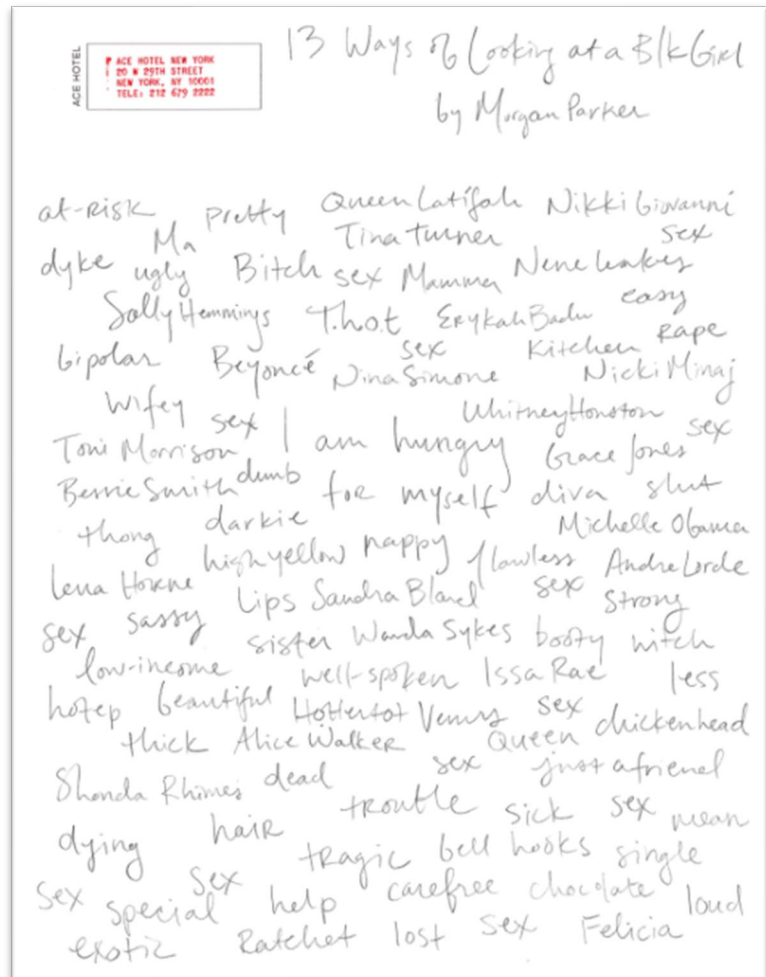 ACE HOTEL
ACE HOTEL NEW YORK
20 W 29TH STREET
NEW YORK, NY 10001
TELE: 212 679 2222
13 Ways of Looking at a Blk Girl
by Morgan Parker
at-risk pretty Queen Latifah Nikki Giovanni
Ma Tina Turner sex
dyke ugly Bitch sex Mamma Nene Leakes
Sally Hemmings T.h.o.t Erykah Badu easy
bipolar Beyoncé sex Kitchen rape
Nina Simone Nicki Minaj
wifey sex Whitney Houston
Toni Morrison I am hungry Grace Jones sex
Bessie Smith dumb for myself diva slut
thong darkie Michelle Obama
Lena Horne high yellow nappy flawless Audre Lorde
sex sassy Lips Sandra Bland sex strong
sister Wanda Sykes booty witch
low-income well-spoken Issa Rae less
hotep beautiful Hottentot Venus sex
thick Alice Walker Queen chickenhead
Shonda Rhimes dead sex just a friend
dying hair trouble sick sex mean
tragic bell hooks single
sex special sex help carefree chocolate loud
exotic Ratchet lost sex Felicia